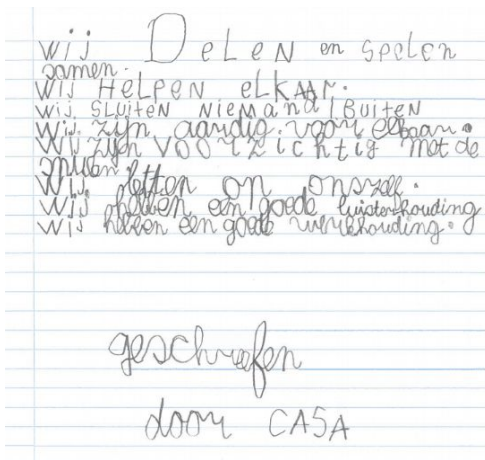 wij DeLeN en spelen
samen.
WIJ HELPEN eLKAAR.
wij SLUITEN NIEMAND BUITEN
Wij zijn aardig voor elkaar.
Wij zijn VOORZICHTIG met de
spullen
Wij letten op onszelf.
Wij hebben een goede luisterhouding
Wij hebben een goede werkhouding.
geschrefen
door CASA